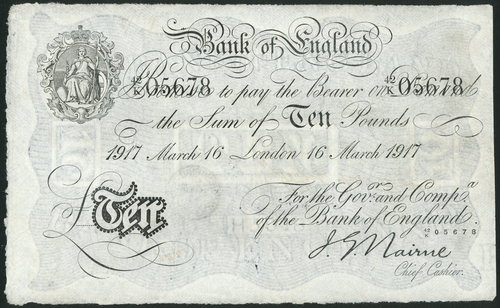 Bank of England
42/K 05678 42/K 05678
Promise to pay the Bearer on Demand
the Sum of Ten Pounds
1917 March 16 London 16 March 1917
For the Govr. and Compa.
of the Bank of England.
42/K 05678
£Ten
J. G. Nairne
Chief Cashier.